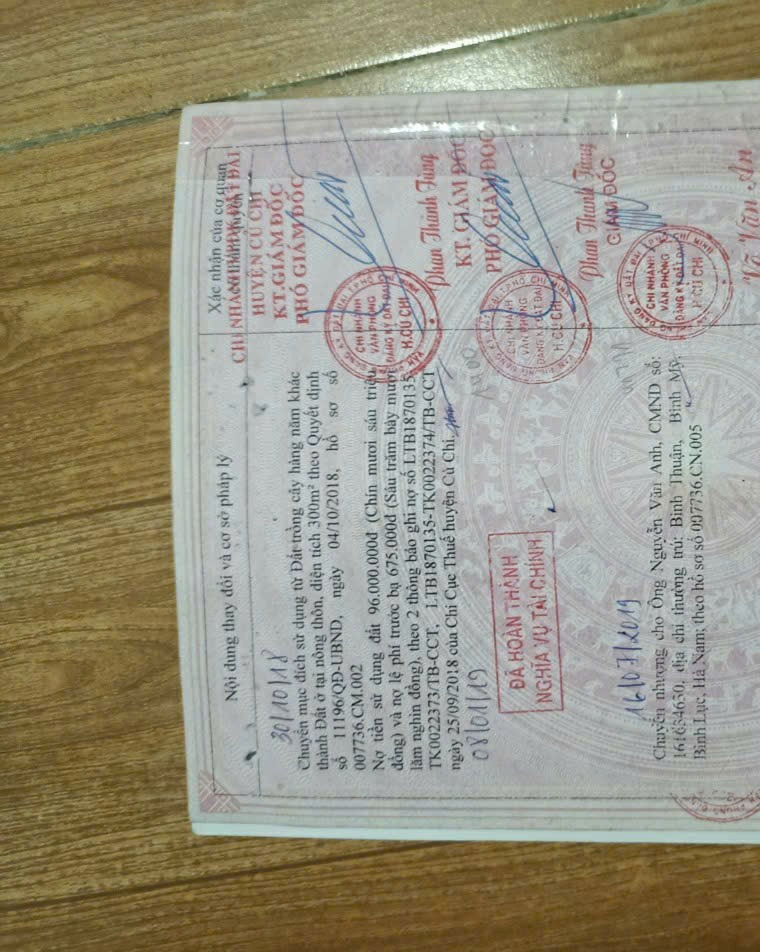 Nội dung thay đổi và cơ sở pháp lý
Xác nhận của cơ quan
có thẩm quyền
30/10/18
Chuyển mục đích sử dụng từ Đất trồng cây hàng năm khác
thành Đất ở tại nông thôn, diện tích 300m² theo Quyết định
số 11196/QĐ-UBND, ngày 04/10/2018, hồ sơ số
007736.CM.002
Nợ tiền sử dụng đất 96.000.000đ (Chín mươi sáu triệu
đồng) và nợ lệ phí trước bạ 675.000đ (Sáu trăm bảy mươi
lăm nghìn đồng), theo 2 thông báo ghi nợ số LTB1870135-
TK0022373/TB-CCT, LTB1870135-TK0022374/TB-CCT
ngày 25/09/2018 của Chi Cục Thuế huyện Củ Chi.
08/01/19
ĐÃ HOÀN THÀNH
NGHĨA VỤ TÀI CHÍNH
16/07/2019
Chuyển nhượng cho Ông Nguyễn Văn Anh, CMND số:
161634630, địa chỉ thường trú: Bình Thuận, Bình Mỹ,
Bình Lục, Hà Nam; theo hồ sơ số 007736.CN.005
CHI NHÁNH VĂN PHÒNG ĐĂNG KÝ ĐẤT ĐAI
HUYỆN CỦ CHI
KT.GIÁM ĐỐC
PHÓ GIÁM ĐỐC
CHI NHÁNH
VĂN PHÒNG
ĐĂNG KÝ ĐẤT ĐAI
H.CỦ CHI
Phan Thanh Tùng
KT. GIÁM ĐỐC
PHÓ GIÁM ĐỐC
CHI NHÁNH
VĂN PHÒNG
ĐĂNG KÝ ĐẤT ĐAI
H.CỦ CHI
Phan Thanh Tùng
GIÁM ĐỐC
CHI NHÁNH
VĂN PHÒNG
ĐĂNG KÝ ĐẤT ĐAI
H.CỦ CHI
Võ Văn An